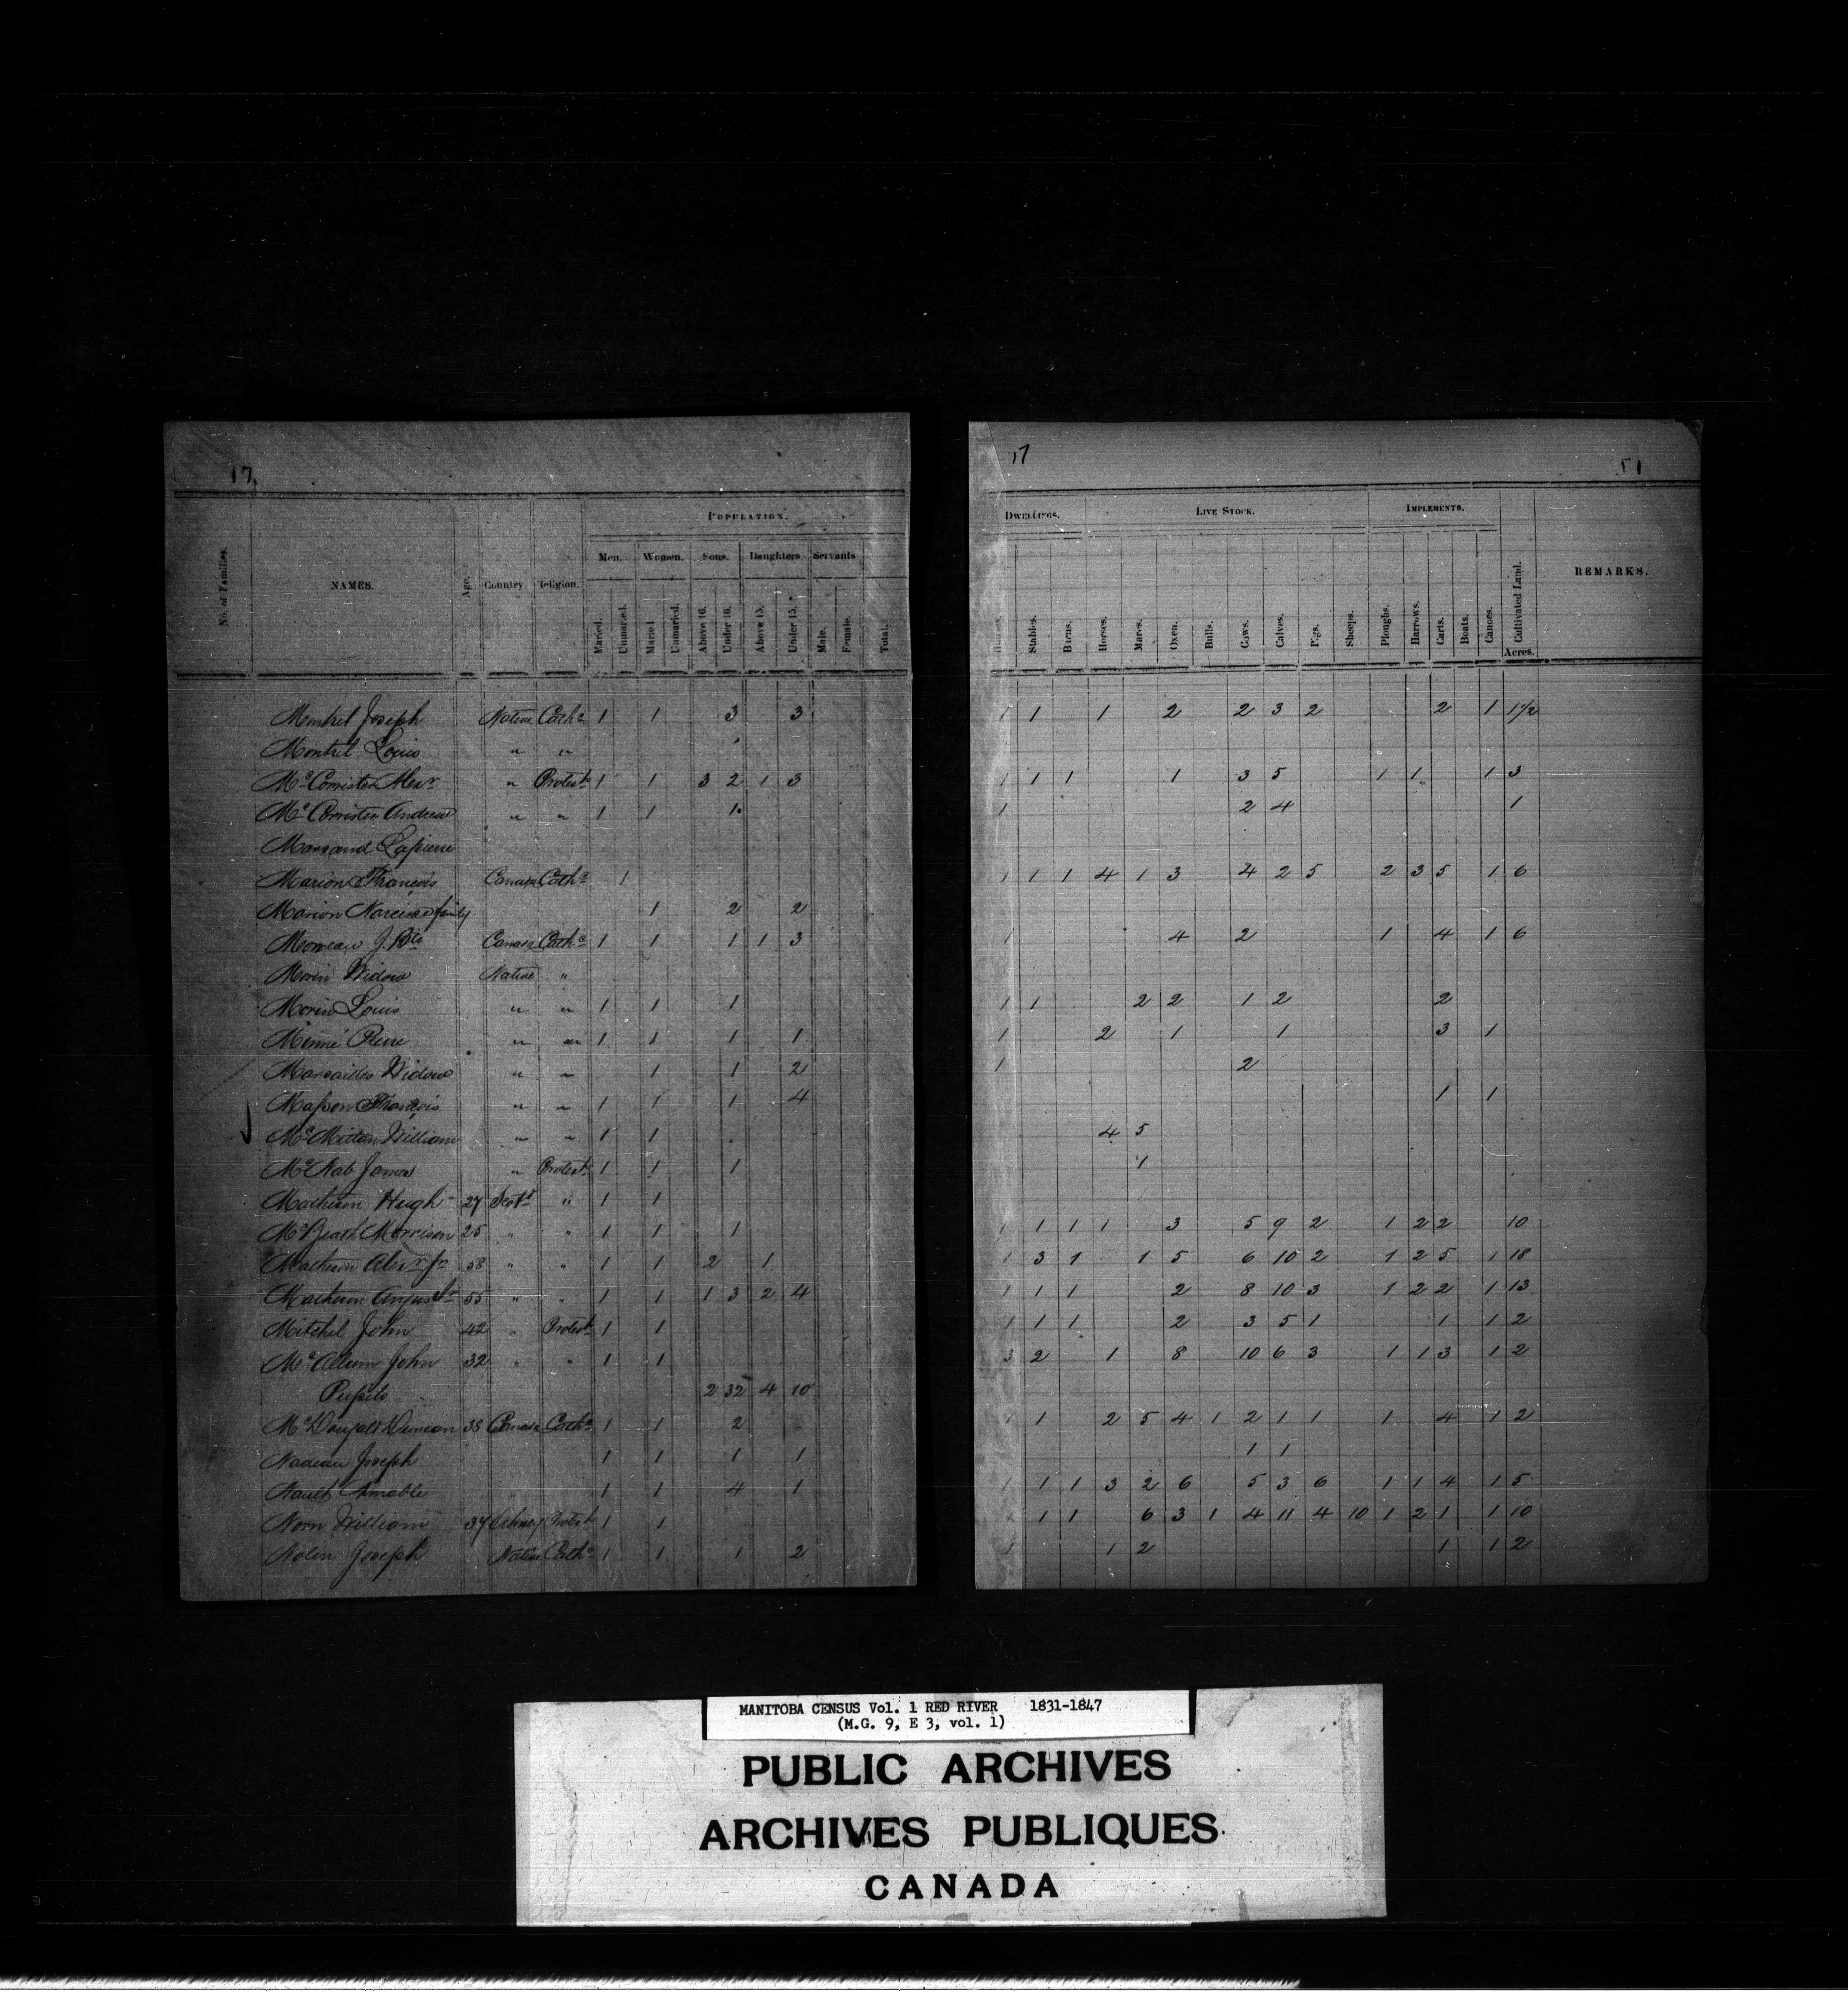 17
POPULATION.
No. of Families.
NAMES.
Age.
Country.
Religion.
Men.
Women.
Sons.
Daughters
Servants
Maried.
Unmaried.
Maried
Unmaried.
Above 16.
Under 16.
Above 15.
Under 15.
Male.
Female.
Total.
Montrel Joseph Native Cathc 1 1 3 3
Montrel Louis " "
McCorrister Alexr " Protest. 1 1 3 2 1 3
McCorrister Andrew " " 1 1 1
Marsand Lapierre
Marion François Canada Cathc 1
Marion Narcisse family 1 2 2
Morreau J. Bte Canada Cathc 1 1 1 1 3
Morin Widow Native "
Morin Louis " " 1 1 1
Minné Pierre " " 1 1 1 1
Marsailles Widow " " 1 1 2
Masson François " " 1 1 1 4
McMillan William " " 1 1
McNab James " Protest. 1 1 1
Matheson Hugh 27 Scotd " 1 1
McBeath Morrison 25 " " 1 1 1
Matheson Alexr Jr 58 " " 1 1 2 1
Matheson Angus Sr 55 " " 1 1 1 3 2 4
Mitchel John 42 " Protest. 1 1
McAllum John 32 " " 1 1
Pupils 2 32 4 10
McDougald Duncan 38 Canada Cathc 1 1 2
Nadeau Joseph 1 1 1 1
Nault Amable 1 1 4 1
Norn William 37 Orkney Protest. 1 1
Nolin Joseph Native Cathc 1 1 1 2
17
51
DWELLINGS.
LIVE STOCK.
IMPLEMENTS.
Houses.
Stables.
Barns.
Horses.
Mares.
Oxen.
Bulls.
Cows.
Calves.
Pigs.
Sheeps.
Ploughs.
Harrows.
Carts.
Boats.
Canoes.
Cultivated Land.
Acres.
REMARKS.
1 1 1 2 2 3 2 2 1 1½
1 1 1 1 3 5 1 1 1 3
1 2 4 1
1 1 1 4 1 3 4 2 5 2 3 5 1 6
1 4 2 1 4 1 6
1 1 2 2 1 2 2
1 2 1 1 3 1
1 2
1 1
4 5
1
1 1 1 1 3 5 9 2 1 2 2 10
1 3 1 1 5 6 10 2 1 2 5 1 18
1 1 1 2 8 10 3 1 2 2 1 13
1 1 1 2 3 5 1 1 1 2
3 2 1 8 10 6 3 1 1 3 1 2
1 1 2 5 4 1 2 1 1 1 4 1 2
1 1
1 1 1 3 2 6 5 3 6 1 1 4 1 5
1 1 6 3 1 4 11 4 10 1 2 1 1 10
1 1 2 1 1 2
MANITOBA CENSUS Vol. 1 RED RIVER 1831-1847
(M.G. 9, E 3, vol. 1)
PUBLIC ARCHIVES
ARCHIVES PUBLIQUES
CANADA